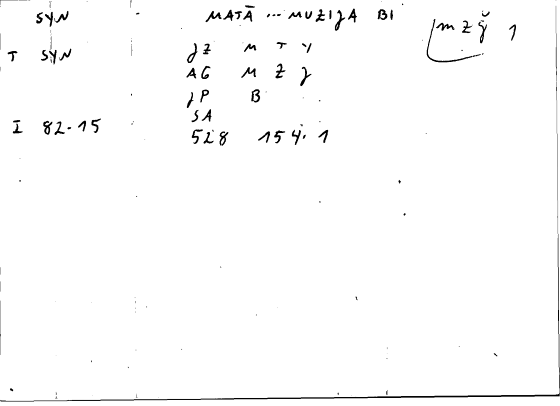 SYN MATĀ ... MUZIJA BI mzǧ 1
T SYN JZ M T Y
AG M Z J
JP B
SA
I 82-15 528 154.1